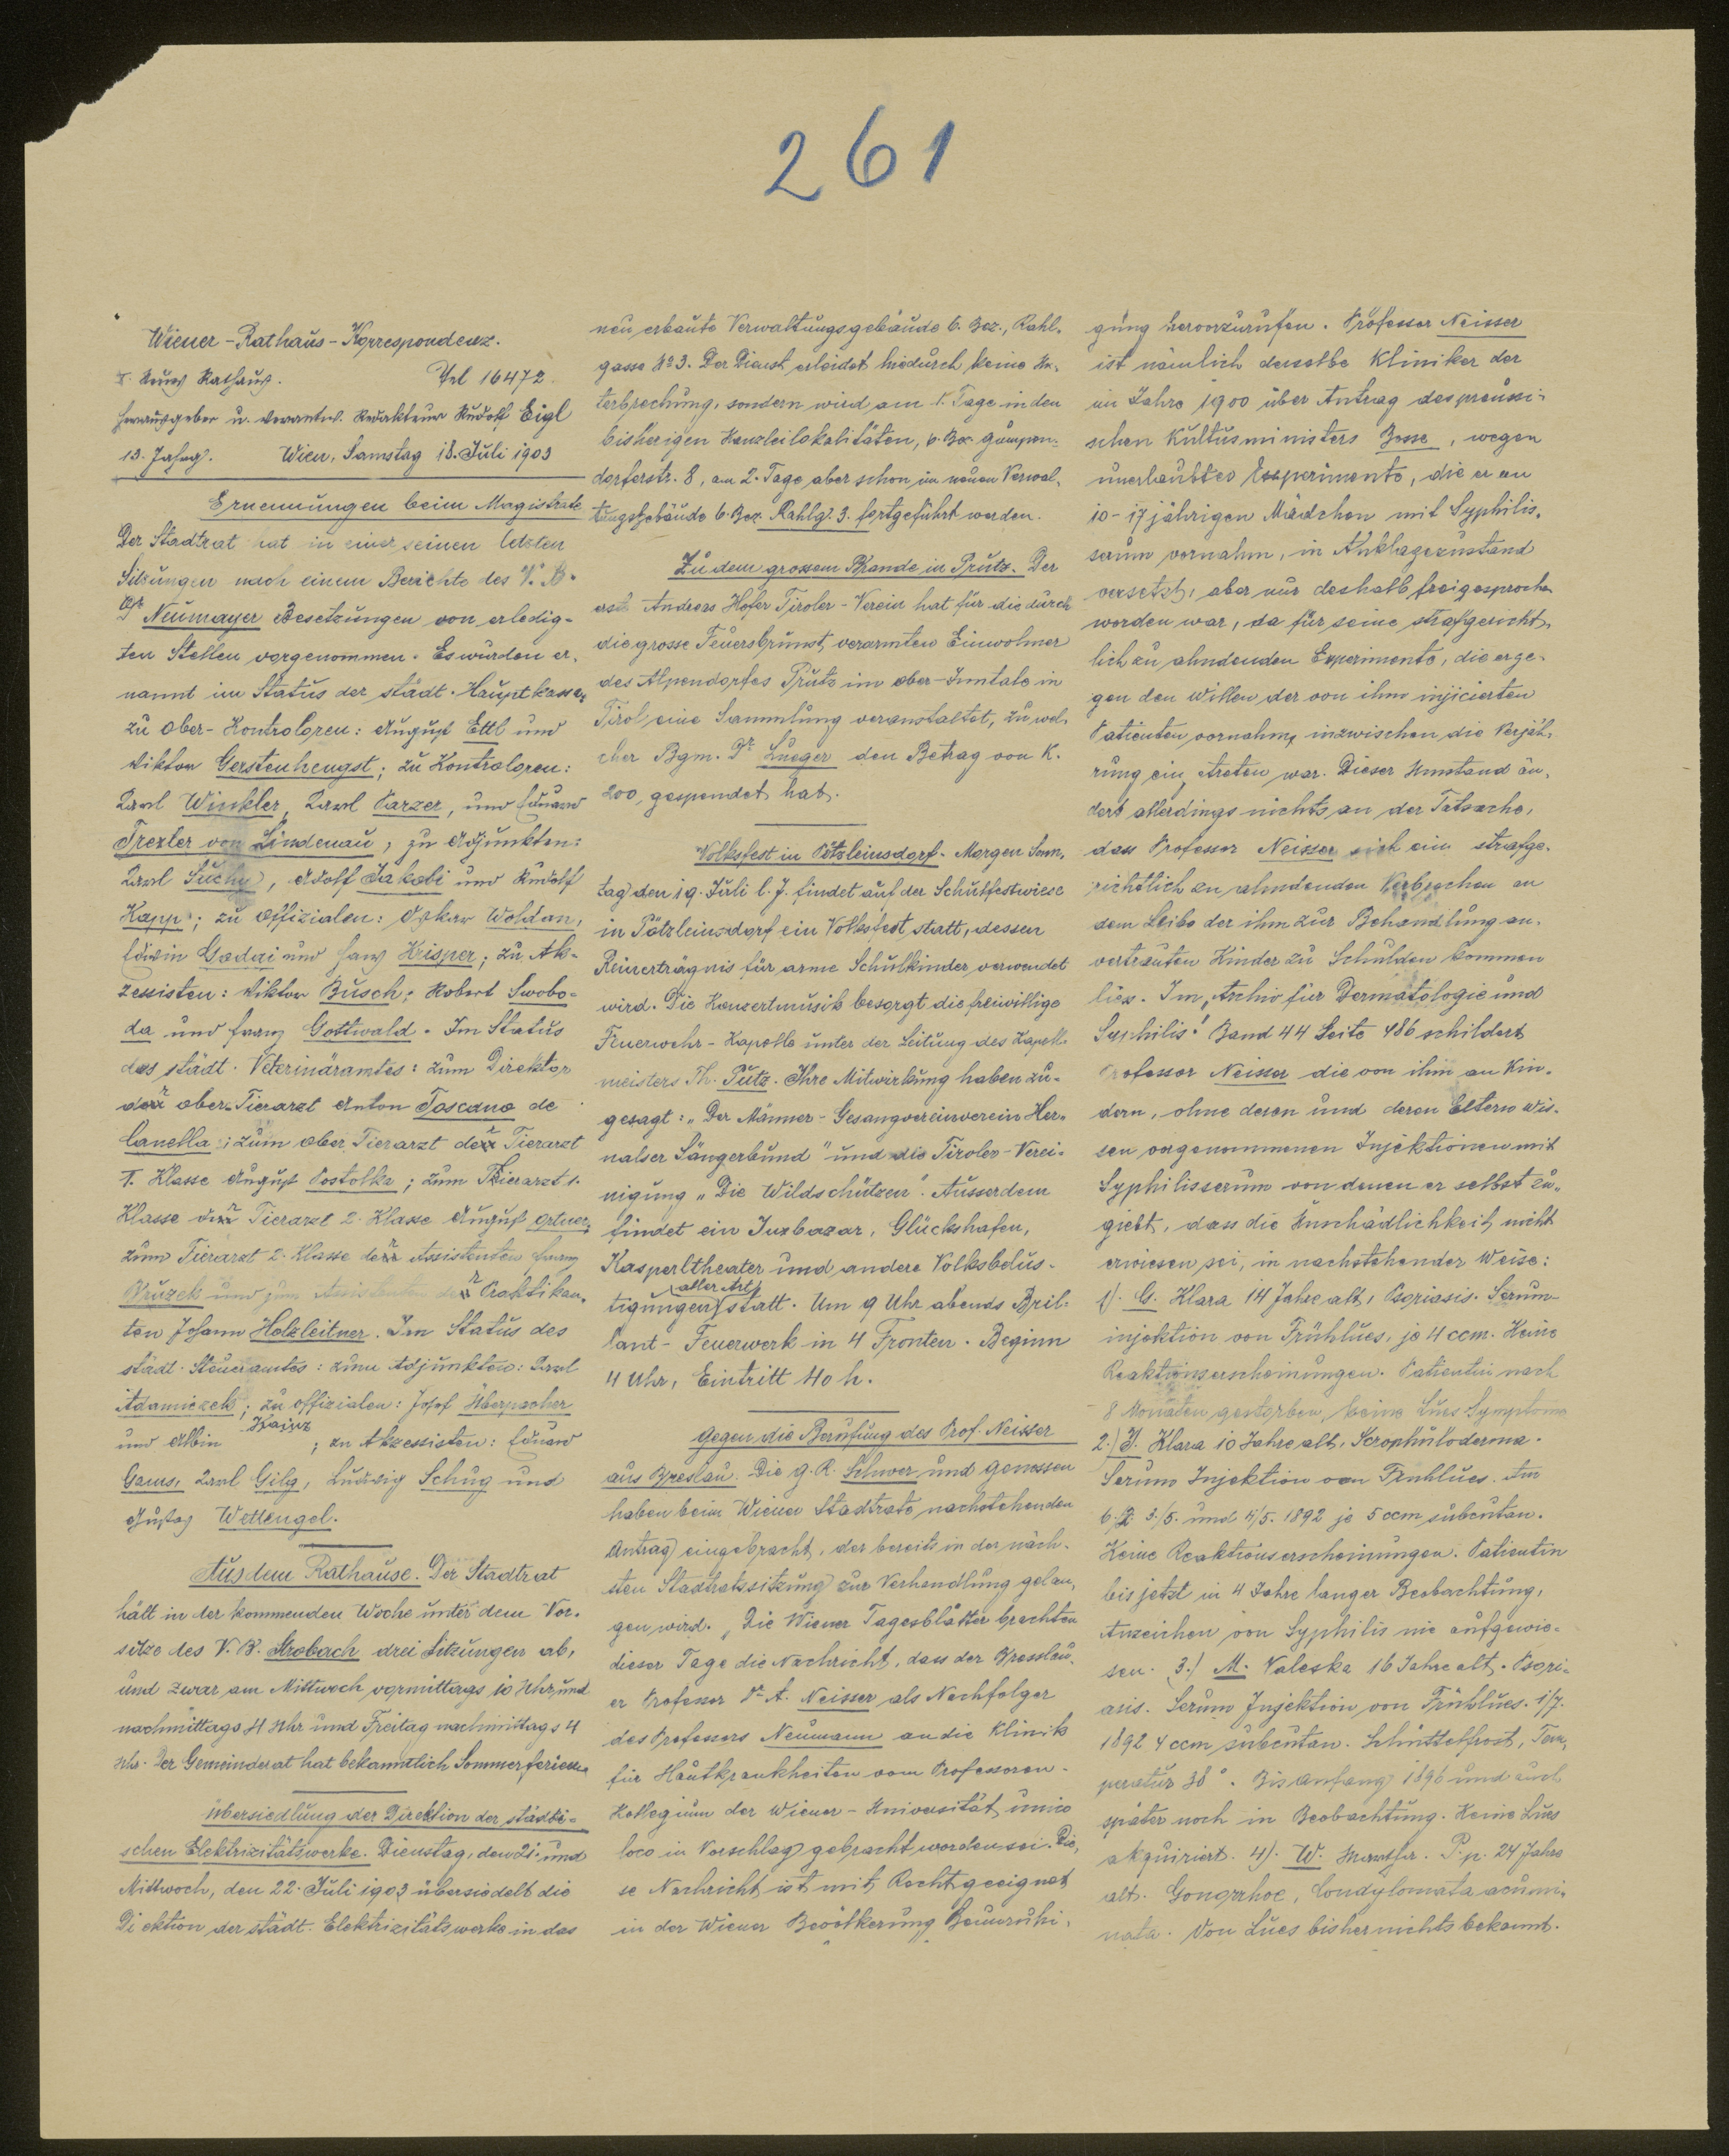 261
Wiener-Rathaus-Korrespondenz.
I. Neues Rathaus. Tel 16472.
Herausgeber u. verantw. Redakteur Rudolf Eigl
13. Jahrg. Wien, Samstag 18. Juli 1903
Ernennungen beim Magistrate
Der Stadtrat hat in einer seinen letzten
Sitzungen nach einem Berichte des V. B.
Dr Neumayer Besetzungen von erledig-
ten Stellen vorgenommen. Es wurden er-
nannt im Status der städt. Hauptkasse,
zu Ober-Kontroloren: August Ettl und
Viktor Gerstenhengst; zu Kontroloren:
Karl Winkler, Karl Parzer, und Eduard
Trexler von Lindenau; zu Adjunkten:
Karl Suchy, Adolf Jakobi und Rudolf
Kapp; zu Offizialen: Oskar Woldan,
Edwin Gadai und Hans Krisper; zu Ak-
zessisten: Viktor Busch; Robert Swobo-
da und Franz Gottwald. Im Status
des städt. Veterinäramtes: zum Direktor
der Ober-Tierarzt Anton Toscano de
Canella; zum Ober Tierarzt der Tierarzt
I. Klasse August Postolka; zum Tierarzt 1.
Klasse der Tierarzt 2. Klasse August Ortner,
zum Tierarzt 2. Klasse der Assistenten Franz
Gruzek und zum Assistenten der Praktikan-
ten Johann Holzleitner. Im Status des
städt. Steueramtes: zum Adjunkten: Karl
Adamiczek; zu Offizialen: Josef Überpacher
und Albin Kainz; zu Akzessisten: Eduard
Gams, Karl Gilg, Ludwig Schug und
Gustav Wettengel.
Aus dem Rathause. Der Stadtrat
hält in der kommenden Woche unter dem Vor-
sitze des V. B. Strobach drei Sitzungen ab,
und zwar am Mittwoch vormittags 10 Uhr und
nachmittags 4 Uhr und Freitag nachmittags 4
Uhr. Der Gemeinderat hat bekanntlich Sommerferien.
Übersiedlung der Direktion der städti-
schen Elektrizitätswerke. Dienstag, den 21. und
Mittwoch, den 22. Juli 1903 übersiedelt die
Di ektion der städt. Elektrizitätswerke in das
neu erbaute Verwaltungsgebäude 6. Bez., Rahl-
gasse No 3. Der Dienst erleidet hiedurch keine Un-
terbrechung, sondern wird am 1. Tage in den
bisherigen Kanzleilokalitäten, 6. Bez. Gumpen-
dorferstr. 8, am 2. Tage aber schon im neuen Verwal-
tungsgebäude 6. Bez. Rahlg. 3. fortgeführt werden.
Zu dem grossem Brande in Prutz. Der
erste Andreas Hofer Tiroler-Verein hat für die durch
die grosse Feuersbrunst verarmten Einwohner
des Alpendorfes Prutz im ober-Inntale in
Tirol eine Sammlung veranstaltet, zu wel-
cher Bgm. Dr Lueger den Betrag von K.
200, gespendet hat.
Volksfest in Pötzleinsdorf. Morgen Sonn-
tag den 19. Juli l. J. findet auf der Schulfestwiese
in Pötzleinsdorf ein Volksfest statt, dessen
Reinerträgnis für arme Schulkinder verwendet
wird. Die Konzertmusik besorgt die freiwillige
Feuerwehr-Kapelle unter der Leitung des Kapell-
meisters Th. Putz. Ihre Mitwirkung haben zu-
gesagt: "Der Männer-Gesangvereinverein Her-
nalser Sängerbund" und die Tiroler-Verei-
nigung "Die Wildschützen". Ausserdem
findet ein Juxbazar, Glückshafen,
Kasperltheater und andere Volksbelus-
tigungen aller Art statt. Um 9 Uhr abends Bril-
lant-Feuerwerk in 4 Fronten. Beginn
4 Uhr, Eintritt 40 h.
Gegen die Berufung des Prof. Neisser
aus Breslau. Die G. R. Schwer und Genossen
haben beim Wiener Stadtrate nachstehenden
Antrag eingebracht, der bereits in der näch-
sten Stadtratssitzung zur Verhandlung gelan-
gen wird. „Die Wiener Tagesblätter brachten
dieser Tage die Nachricht, dass der Breslau-
er Professor Dr A. Neisser als Nachfolger
des Professors Neumann an die Klinik
für Hautkrankheiten vom Professoren-
Kollegium der Wiener-Universität unico
loco in Vorschlag gebracht worden sei. Die-
se Nachricht ist mit Recht geeignet
in der Wiener Bevölkerung Beunruhi-
gung hervorzurufen. Professor Neisser
ist nämlich derselbe Kliniker der
im Jahre 1900 über Antrag des preussi-
schen Kultusministers Bosse, wegen
unerlaubter Experimente, die er an
10-17 jährigen Mädchen mit Syphilis-
serum vornahm, in Anklagezustand
versetzt, aber nur deshalb freigesprochen
worden war, da für seine strafgericht-
lich zu ahndenden Experimente, die er ge-
gen den Willen der von ihm injicierten
Patienten vornahm, inzwischen die Verjäh-
rung eingetreten war. Dieser Umstand än-
dert allerdings nichts an der Tatsache,
dass Professor Neisser sich ein strafge-
richtlich zu ahndenden Verbrechen an
dem Leibe der ihm zur Behandlung an-
vertrauten Kinder zu Schulden kommen
liess. Im „Archiv für Dermatologie und
Syphilis" Band 44 Seite 486 schildert
Professor Neisser die von ihm an Kin-
dern, ohne deren und deren Eltern Wis-
sen vorgenommenen Injektionen mit
Syphilisserum von denen er selbst zu-
giebt, dass die Unschädlichkeit nicht
erwiesen sei, in nachstehender Weise:
1). G. Klara 14 Jahre alt, Psoriasis. Serum-
injektion von Frühlues, je 4 ccm. Keine
Reaktionserscheinungen. Patientin nach
8 Monaten gestorben, keine Lues Symptome
2.) J. Klara 10 Jahre alt, Scrophuloderma.
Serum Injektion von Frühlues. Am
6. 2. 3./5. und 11/5. 1892 je 5 ccm subcutan.
Keine Reaktionserscheinungen. Patientin
bis jetzt in 4 Jahre langer Beobachtung,
Anzeichen von Syphilis nie aufgewie-
sen. 3.) M. Valeska 16 Jahre alt. Psori-
asis. Serum Injektion von Frühlues. 1/7.
1892 4 ccm subcutan. Schüttelfrost, Tem-
peratur 38°. Bis Anfang 1896 und auch
später noch in Beobachtung. Keine Lues
akquiriert. 4). W. Martha. P. p. 24 Jahre
alt. Gonorrhoe, Condylomata acumi-
nata. Von Lues bisher nichts bekannt.